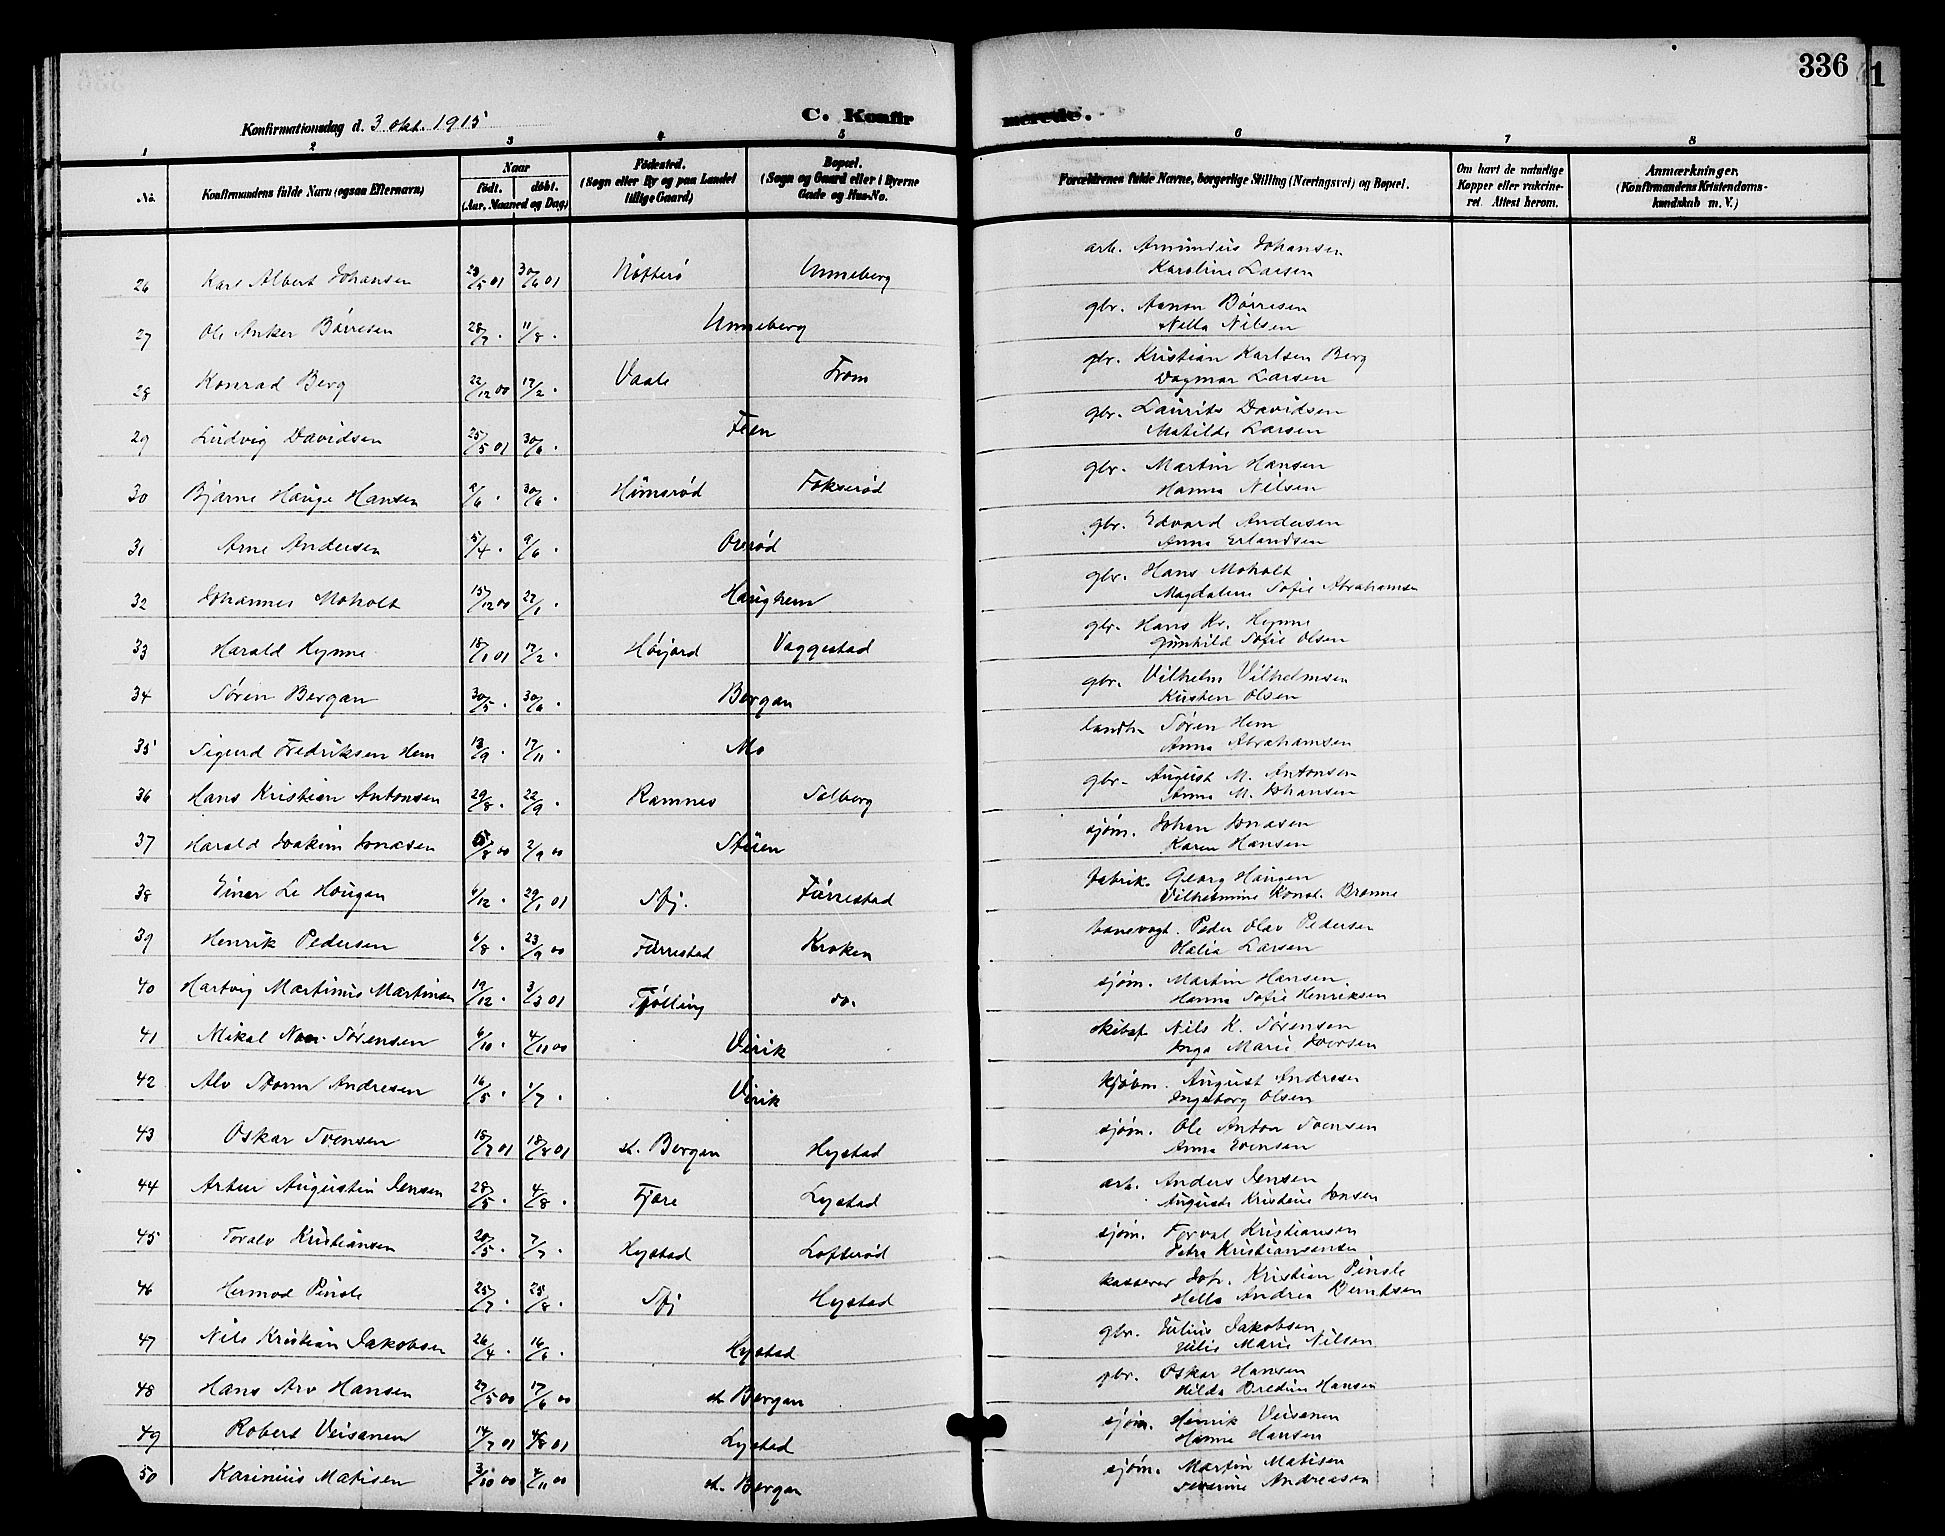 336
1
Konfirmationsdag d. 3 okt. 1915
C. Konfirmerede.
1 2 3 4 5 6 7 8
No
Konfirmandens fulde Navn (ogsaa Efternavn)
Naar
født. døbt.
(Aar, Maaned og Dag)
Fødested.
(Sogn eller By og paa Landet
tillige Gaard)
Bopæl.
(Sogn og Gaard eller i Byerne
Gade og Hus-No.
Forældrenes fulde Navne, borgerlige Stilling (Næringsvei) og Bopæl.
Om havt de naturlige
Kopper eller vakcine-
ret. Attest herom.
Anmærkninger.
(Konfirmandens Kristendoms-
kundskab m. V.)
26 Karl Albert Johansen 23/5 01 30/6 01 Nøtterø Unneberg arb. Amundus Johansen
Karoline Larsen
27 Ole Anker Børresen 28/7 . 11/8 . Unneberg gbr. Aanon Børresen
Nella Nilsen
28 Konrad Berg 22/12 00 17/2 . Vaale From gbr. Kristian Karlsen Berg
Dagmar Larsen
29 Ludvig Davidsen 25/5 01 30/6 . Feen gbr. Laurits Davidsen
Matilde Larsen
30 Bjarne Hauge Hansen 9/6 . 30/6 . Himsrød Fokserød gbr. Martin Hansen
Hanna Nilsen
31 Arne Andersen 5/4 . 9/6 . Overød gbr. Edvard Andersen
Anna Erlandsen
32 Johannes Moholt 15/12 00 27/1 . Haughem gbr. Hans Moholt
Magdalene Sofie Abrahamsen
33 Harald Hynne 18/1 01 17/2 . Høijord Vaggestad gbr. Hans Kr. Hynne
Gunhild Sofie Olsen
34 Søren Bergan 30/5 . 30/6 . Bergan gbr. Vilhelm Vilhelmsen
Kirsten Olsen
35 Sigurd Fredriksen Hem 13/9 . 17/11 . Mo landh. Søren Hem
Anna Abrahamsen
36 Hans Kristian Antonsen 29/8 . 22/9 . Ramnes Solberg gbr. August M. Antonsen
Anna M. Johansen
37 Harald Joakim Jonasen 5/8 00 2/9 00 Stuen sjøm. Johan Jonasen
Karen Hansen
38 Einar Le Hougan 6/12 . 29/1 01 Sfj. Furrestad fabrik. Georg Haugen
Vilhelmine Konst. Brenne
39 Henrik Pedersen 6/8 . 23/9 00 Furrestad Kroken banevogt. Peder Olav Pedersen
Olalia Larsen
40 Hartvig Martinus Martinsen 19/12 . 3/3 01 Tjølling do. sjøm. Martin Hansen
Hanna Sofie Henriksen
41 Mikal Norn Sørensen 6/10 . 4/11 00 Virik skibsf. Nils K. Sørensen
Inga Marie Iversen
42 Alv Storm Andresen 16/5 . 1/7 . Virik kjøbm. August Andresen
Ingeborg Olsen
43 Oskar Svensen 18/7 01 18/8 01 st. Bergan Hystad sjøm. Ole Anton Svensen
Anna Svensen
44 Artur Augustin Jensen 28/5 . 4/8 . Fjære Lystad arb. Anders Jensen
Auguste Kristine Jonsen
45 Toralv Kristiansen 20/5 . 7/7 . Hystad Lofterød sjøm. Torval Kristiansen
Petra Kristiansen
46 Hermod Pinsle 25/7 . 25/8 . Sfj Hystad kasserer Joh. Kristian Pinsle
Hella Andrea Berntsen
47 Nils Kristian Jakobsen 26/4 . 16/6 . Hystad gbr. Julius Jakobsen
Julie Marie Nilsen
48 Hans Arv Hansen 27/5 00 17/6 00 st. Bergan gbr. Oskar Hansen
Hilda Bredine Hansen
49 Robert Veisanen 14/7 01 4/8 01 Lystad sjøm. Henrik Veisanen
Hanne Hansen
50 Karinius Matisen 3/10 00 4/11 00 st. Bergan sjøm. Martin Matisen
Severine Andreasen